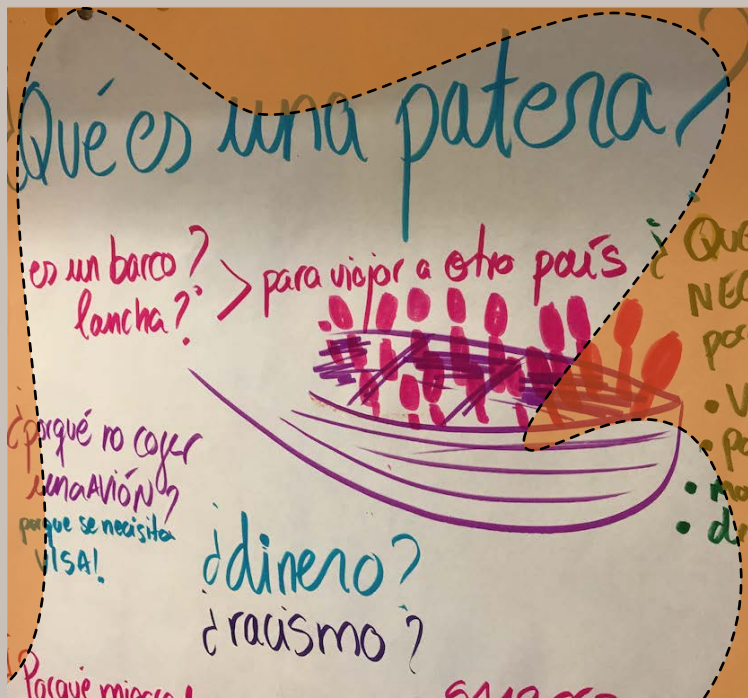 ¿Qué es una patera?
es un barco?
lancha? > para viajar a otro país
¿Que
NEC
por
¿porqué no coger
una AVIÓN?
porque se necesita
VISA!
¿dinero?
¿racismo?
Porqué